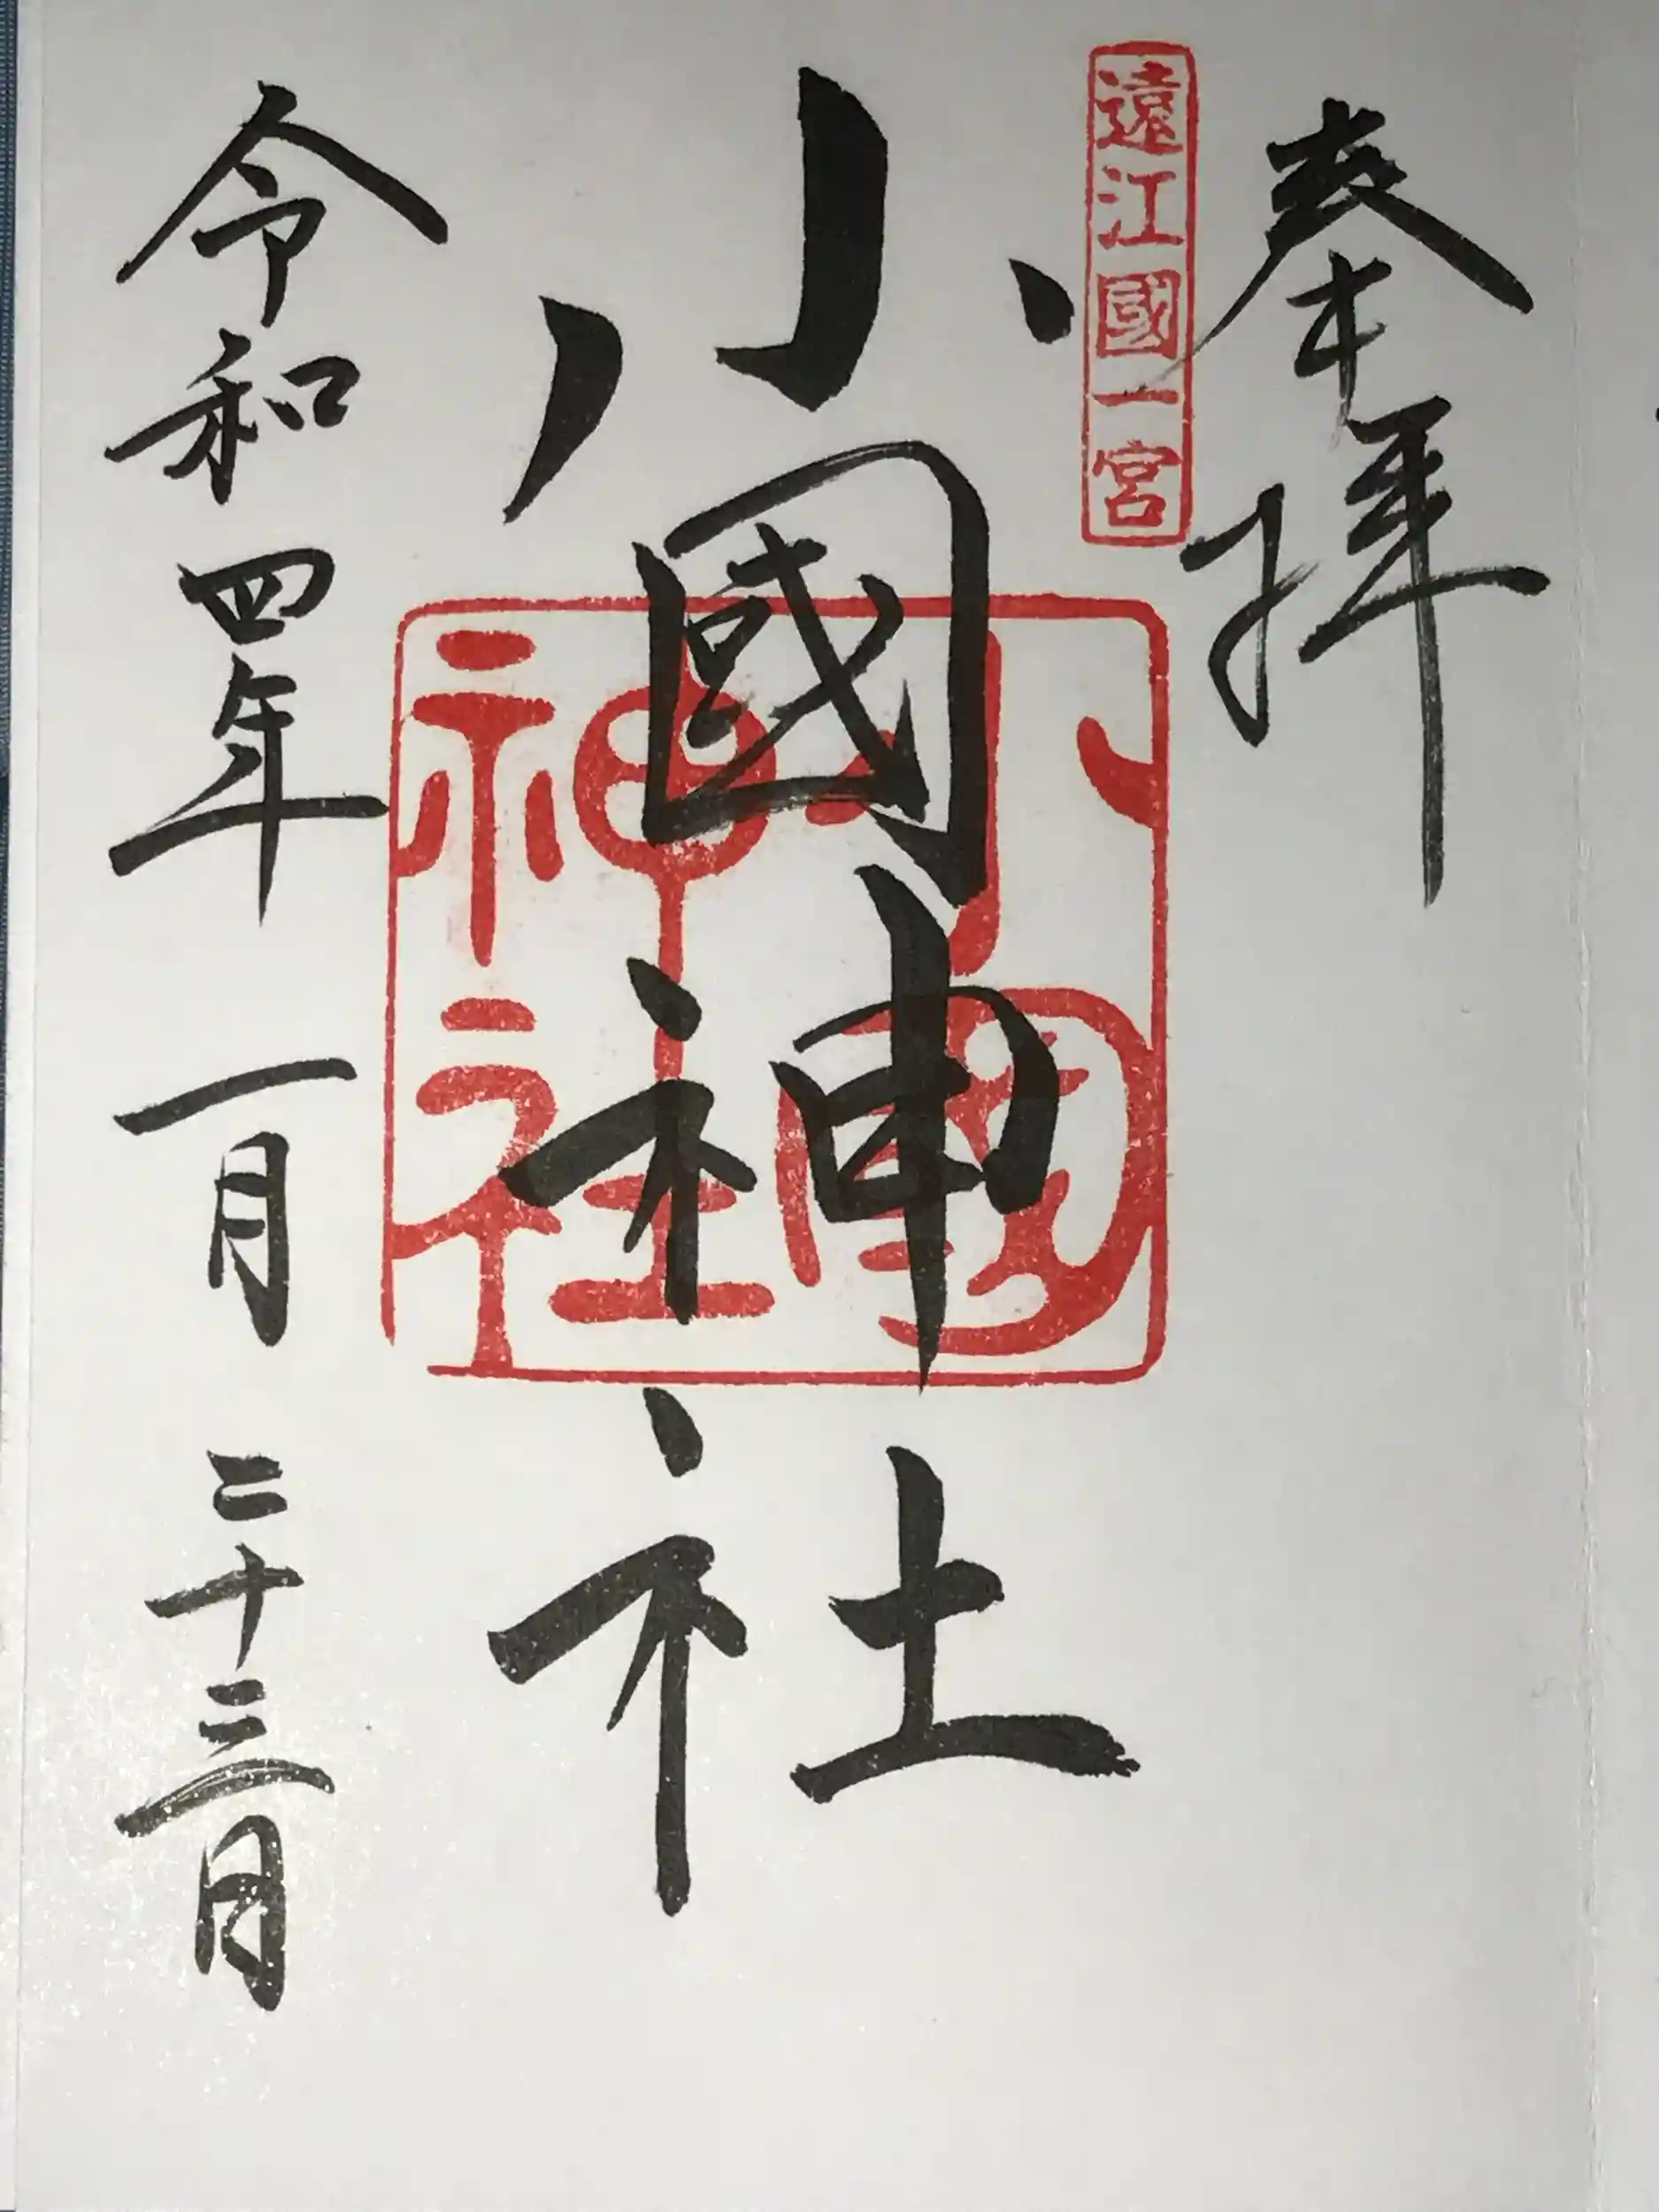 奉拝
遠江國一宮
小國神社
小國神社
令和四年一月二十三日